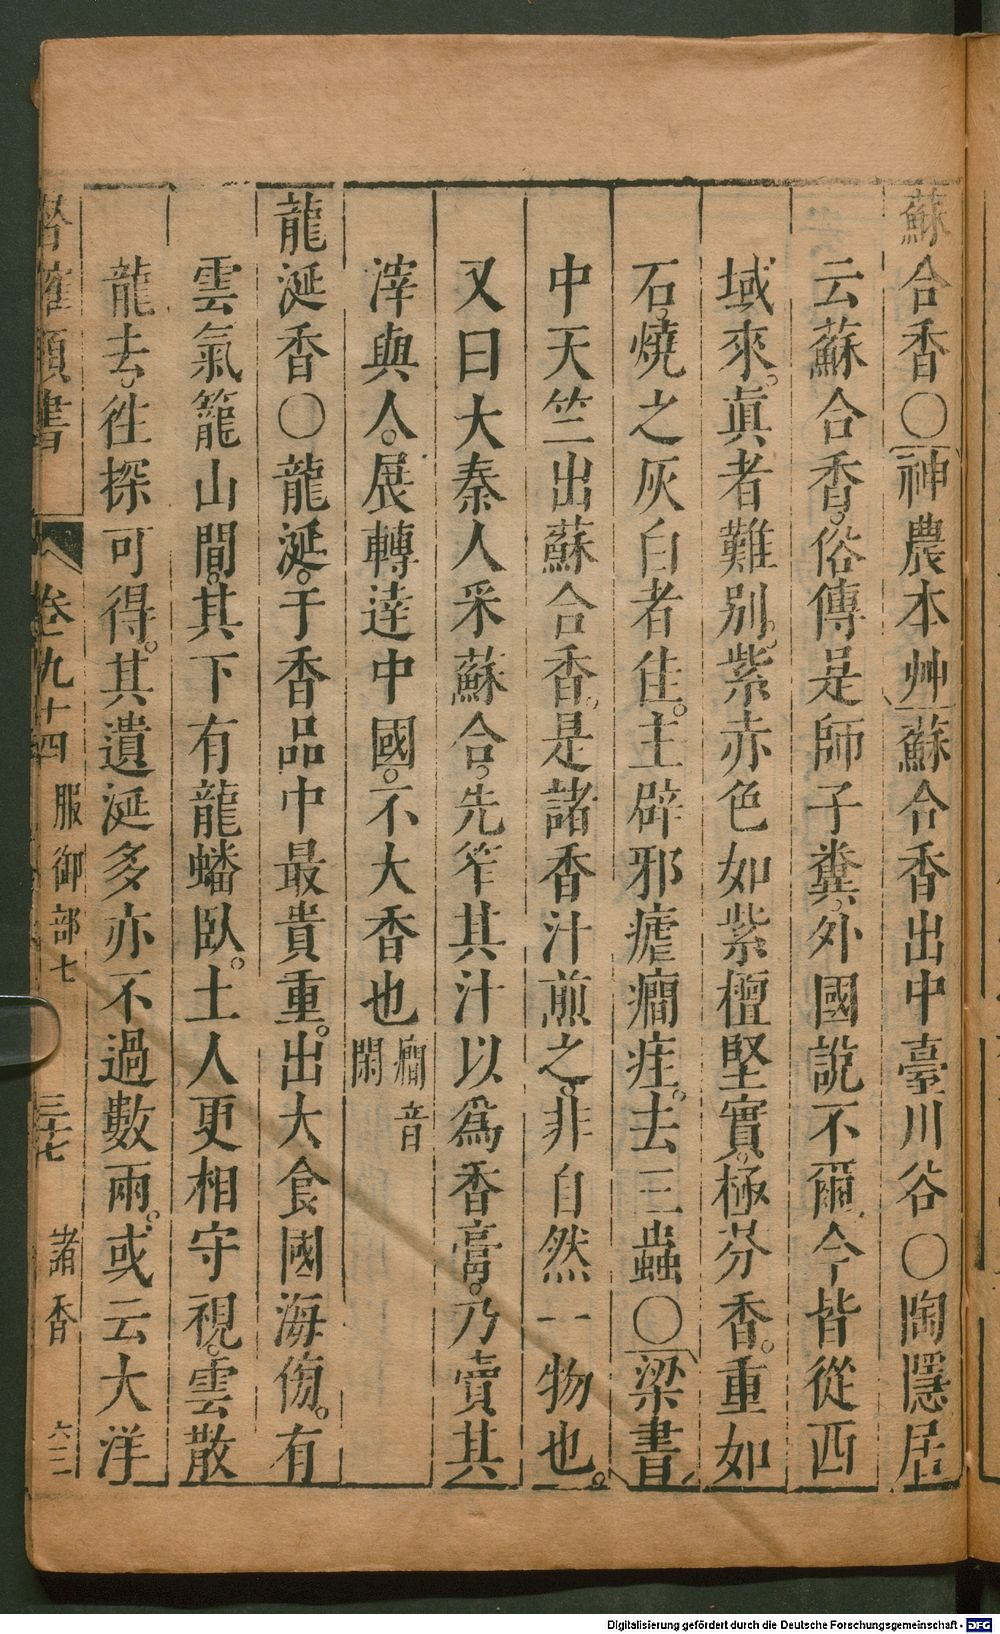 蘇合香〇神農本艸蘇合香出中臺川谷〇陶隱居
云蘇合香。俗傳是師子糞。外國說不爾。今皆從西
域來。眞者難別。紫赤色如紫檀堅實。極芬香。重如
石。燒之灰白者佳。主辟邪瘧癎疰。去三蟲〇梁書
中天竺出蘇合香。是諸香汁煎之。非自然一物也。
又曰大秦人采蘇合。先笮其汁以為香膏。乃賣其
滓與人。展轉達中國。不大香也 癎音閑
龍涎香〇龍涎。于香品中最貴重。出大食國海傍。有
雲氣籠山間。其下有龍蟠臥。土人更相守視。雲散
龍去。往探可得。其遺涎多亦不過數兩。或云大洋
潛確類書 卷九十四 服御部七 三十七 諸香 六二
Digitalisierung gefördert durch die Deutsche Forschungsgemeinschaft - DFG